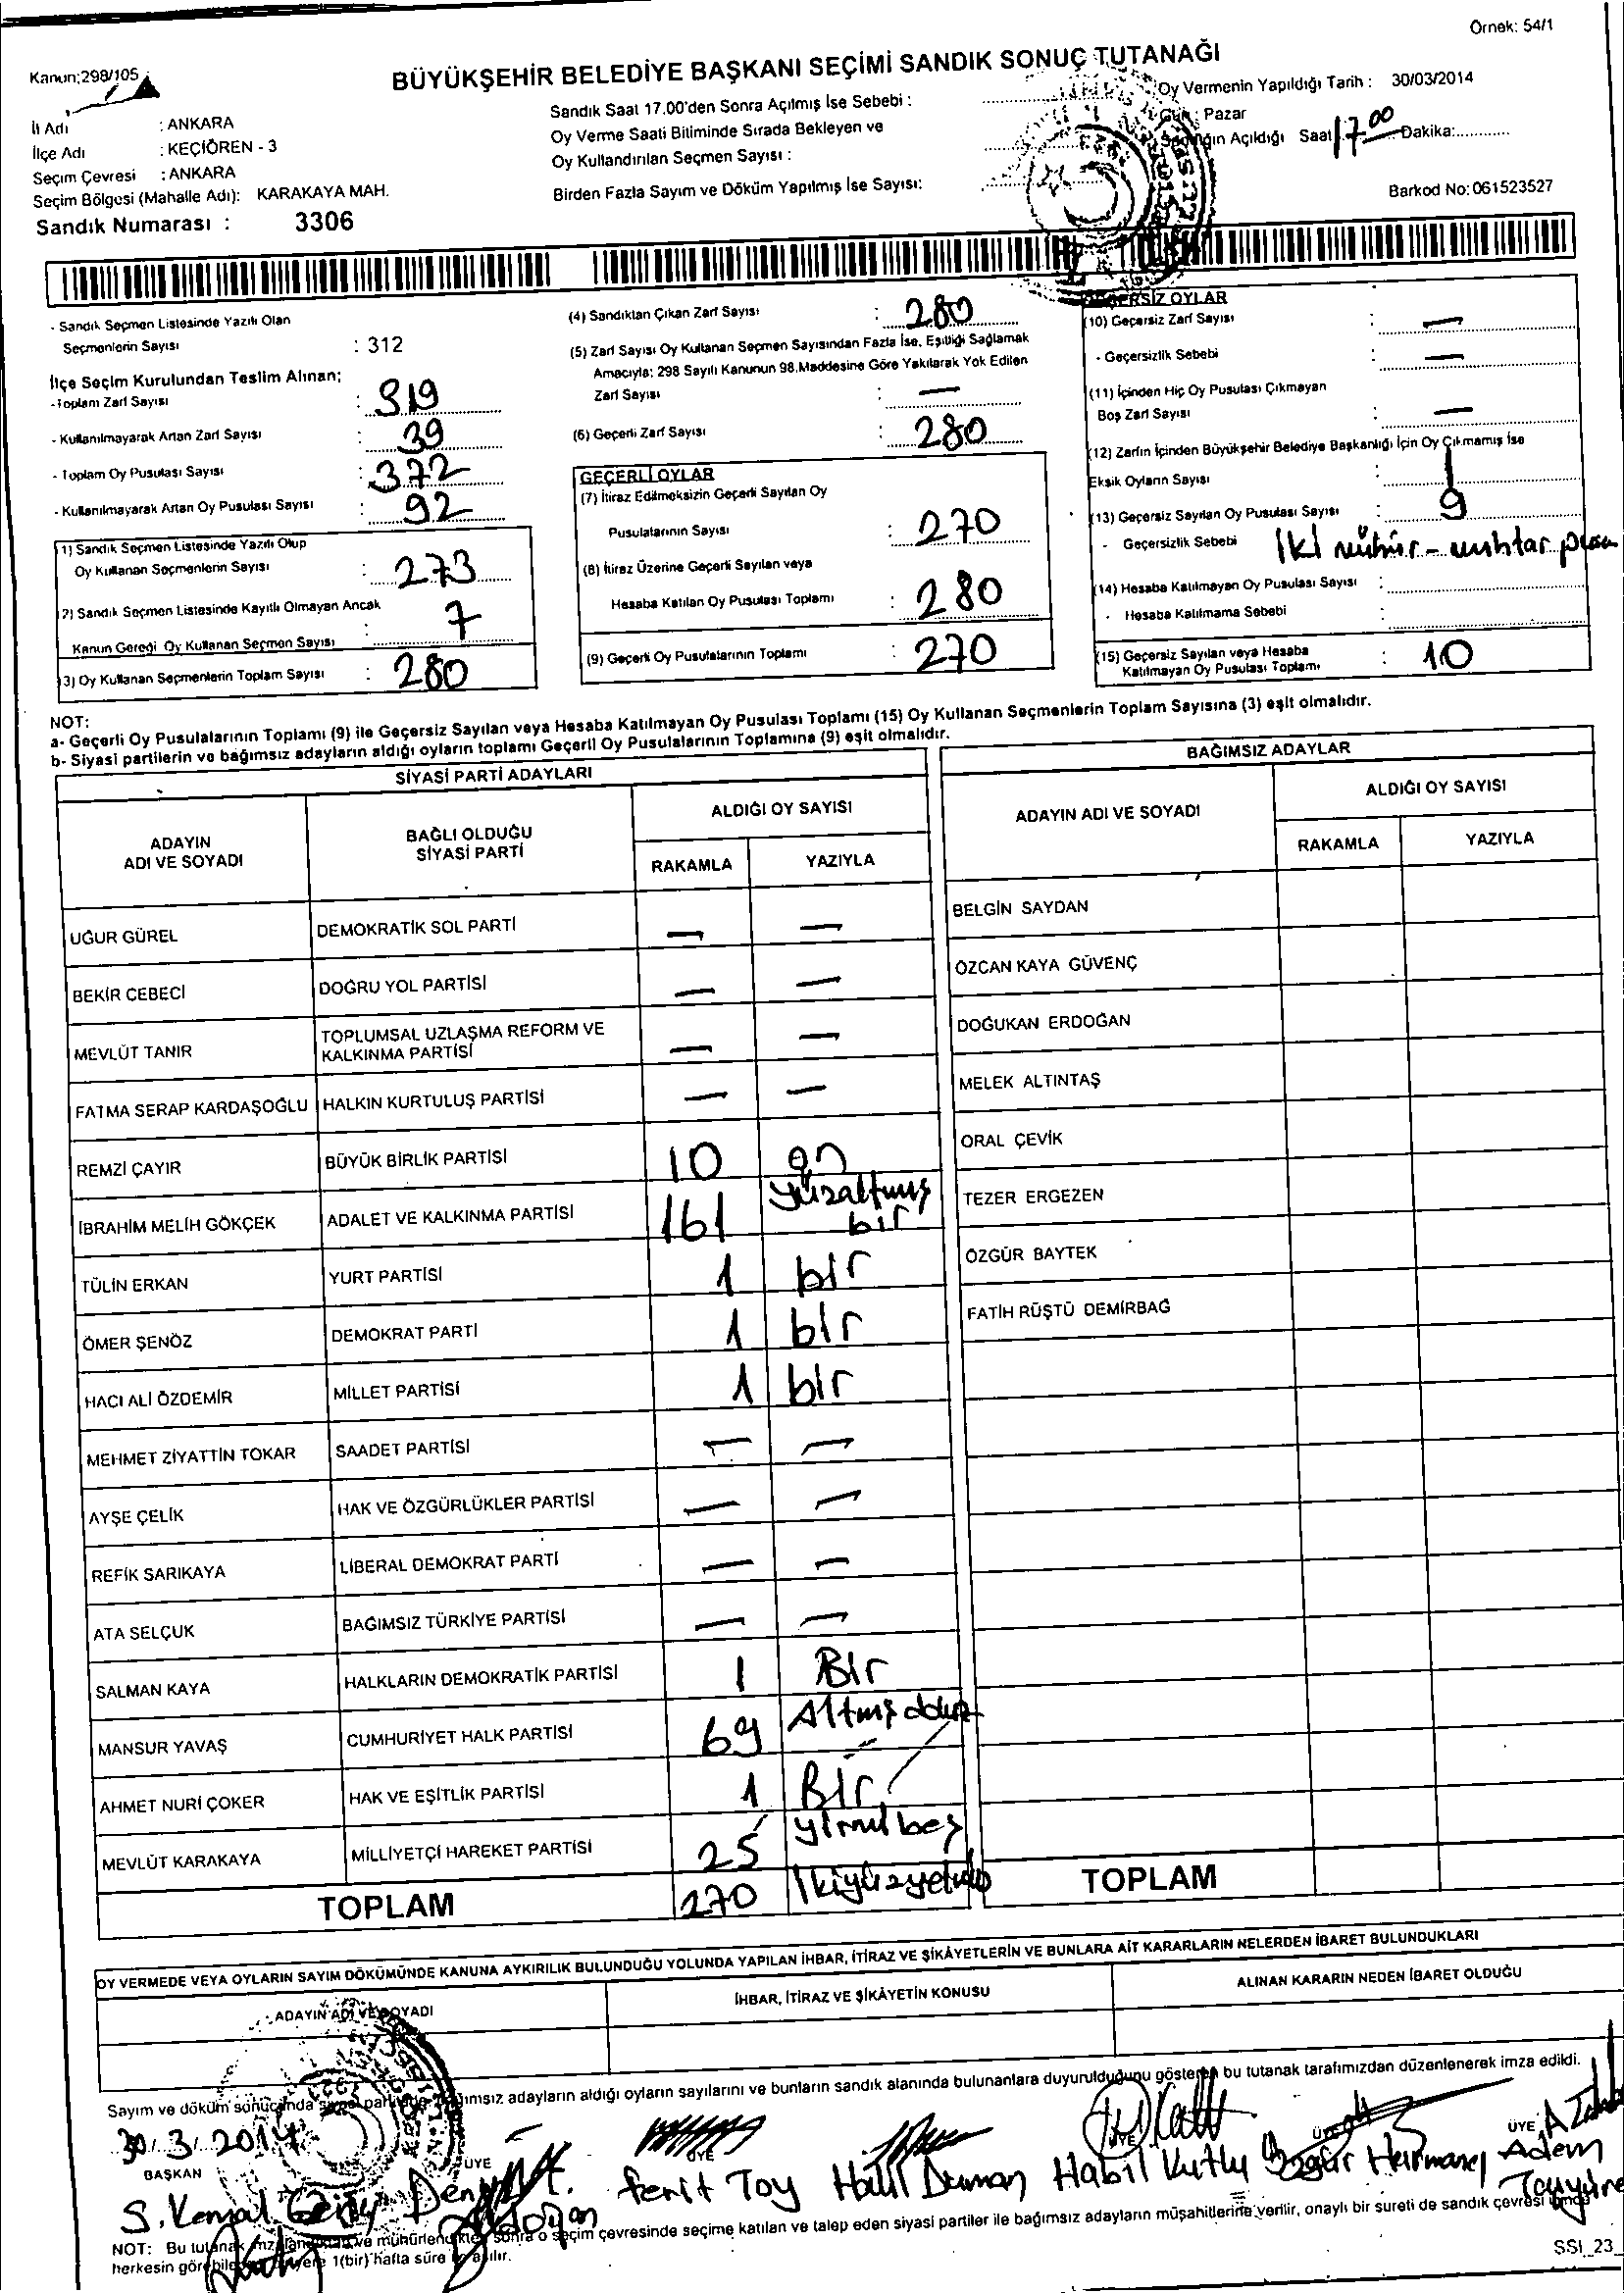 Örnek: 54/1
Kanun;298/105
BÜYÜKŞEHİR BELEDİYE BAŞKANI SEÇİMİ SANDIK SONUÇ TUTANAĞI
İl Adı : ANKARA
İlçe Adı : KEÇİÖREN - 3
Seçim Çevresi : ANKARA
Seçim Bölgesi (Mahalle Adı): KARAKAYA MAH.
Sandık Numarası : 3306
Sandık Saat 17.00'den Sonra Açılmış İse Sebebi :
Oy Verme Saati Bitiminde Sırada Bekleyen ve
Oy Kullandırılan Seçmen Sayısı :
Birden Fazla Sayım ve Döküm Yapılmış İse Sayısı:
Oy Vermenin Yapıldığı Tarih : 30/03/2014
Gün : Pazar
Sandığın Açıldığı Saat 17.00 Dakika:
Barkod No: 061523527
- Sandık Seçmen Listesinde Yazılı Olan
Seçmenlerin Sayısı : 312
İlçe Seçim Kurulundan Teslim Alınan;
-Toplam Zarf Sayısı : 319
- Kullanılmayarak Artan Zarf Sayısı : 39
- Toplam Oy Pusulası Sayısı : 372
- Kullanılmayarak Artan Oy Pusulası Sayısı : 92
1) Sandık Seçmen Listesinde Yazılı Olup
Oy Kullanan Seçmenlerin Sayısı : 273
2) Sandık Seçmen Listesinde Kayıtlı Olmayan Ancak
Kanun Gereği Oy Kullanan Seçmen Sayısı : 7
3) Oy Kullanan Seçmenlerin Toplam Sayısı : 280
(4) Sandıktan Çıkan Zarf Sayısı : 280
(5) Zarf Sayısı Oy Kullanan Seçmen Sayısından Fazla İse, Eşitliği Sağlamak
Amacıyla; 298 Sayılı Kanunun 98.Maddesine Göre Yakılarak Yok Edilen
Zarf Sayısı : —
(6) Geçerli Zarf Sayısı : 280
GEÇERLİ OYLAR
(7) İtiraz Edilmeksizin Geçerli Sayılan Oy
Pusulalarının Sayısı : 270
(8) İtiraz Üzerine Geçerli Sayılan veya
Hesaba Katılan Oy Pusulası Toplamı : 280
(9) Geçerli Oy Pusulalarının Toplamı : 270
GEÇERSİZ OYLAR
(10) Geçersiz Zarf Sayısı : —
- Geçersizlik Sebebi : —
(11) İçinden Hiç Oy Pusulası Çıkmayan
Boş Zarf Sayısı : —
(12) Zarfın İçinden Büyükşehir Belediye Başkanlığı İçin Oy Çıkmamış İse
Eksik Oyların Sayısı : 1
(13) Geçersiz Sayılan Oy Pusulası Sayısı : 9
- Geçersizlik Sebebi İki mühür - muhtar
(14) Hesaba Katılmayan Oy Pusulası Sayısı :
- Hesaba Katılmama Sebebi :
(15) Geçersiz Sayılan veya Hesaba
Katılmayan Oy Pusulası Toplamı : 10
NOT:
a- Geçerli Oy Pusulalarının Toplamı (9) ile Geçersiz Sayılan veya Hesaba Katılmayan Oy Pusulası Toplamı (15) Oy Kullanan Seçmenlerin Toplam Sayısına (3) eşit olmalıdır.
b- Siyasi partilerin ve bağımsız adayların aldığı oyların toplamı Geçerli Oy Pusulalarının Toplamına (9) eşit olmalıdır.
SİYASİ PARTİ ADAYLARI
ADAYIN ADI VE SOYADI
BAĞLI OLDUĞU SİYASİ PARTİ
ALDIĞI OY SAYISI
RAKAMLA YAZIYLA
UĞUR GÜREL DEMOKRATİK SOL PARTİ — —
BEKİR CEBECİ DOĞRU YOL PARTİSİ — —
MEVLÜT TANIR TOPLUMSAL UZLAŞMA REFORM VE KALKINMA PARTİSİ — —
FATMA SERAP KARDAŞOĞLU HALKIN KURTULUŞ PARTİSİ — —
REMZİ ÇAYIR BÜYÜK BİRLİK PARTİSİ 10 on
İBRAHİM MELİH GÖKÇEK ADALET VE KALKINMA PARTİSİ 161 yüzaltmış bir
TÜLİN ERKAN YURT PARTİSİ 1 bir
ÖMER ŞENÖZ DEMOKRAT PARTİ 1 bir
HACI ALİ ÖZDEMİR MİLLET PARTİSİ 1 bir
MEHMET ZİYATTİN TOKAR SAADET PARTİSİ — —
AYŞE ÇELİK HAK VE ÖZGÜRLÜKLER PARTİSİ — —
REFİK SARIKAYA LİBERAL DEMOKRAT PARTİ — —
ATA SELÇUK BAĞIMSIZ TÜRKİYE PARTİSİ — —
SALMAN KAYA HALKLARIN DEMOKRATİK PARTİSİ 1 Bir
MANSUR YAVAŞ CUMHURİYET HALK PARTİSİ 69 Altmış dokuz
AHMET NURİ ÇOKER HAK VE EŞİTLİK PARTİSİ 1 Bir
MEVLÜT KARAKAYA MİLLİYETÇİ HAREKET PARTİSİ 25 yirmi beş
TOPLAM 270 İkiyüzyetmiş
BAĞIMSIZ ADAYLAR
ADAYIN ADI VE SOYADI
ALDIĞI OY SAYISI
RAKAMLA YAZIYLA
BELGİN SAYDAN
ÖZCAN KAYA GÜVENÇ
DOĞUKAN ERDOĞAN
MELEK ALTINTAŞ
ORAL ÇEVİK
TEZER ERGEZEN
ÖZGÜR BAYTEK
FATİH RÜŞTÜ DEMİRBAĞ
TOPLAM
OY VERMEDE VEYA OYLARIN SAYIM DÖKÜMÜNDE KANUNA AYKIRILIK BULUNDUĞU YOLUNDA YAPILAN İHBAR, İTİRAZ VE ŞİKÂYETLERİN VE BUNLARA AİT KARARLARIN NELERDEN İBARET BULUNDUKLARI
ADAYIN ADI VE SOYADI
İHBAR, İTİRAZ VE ŞİKÂYETİN KONUSU
ALINAN KARARIN NEDEN İBARET OLDUĞU
Sayım ve döküm sonucunda siyasi parti ve bağımsız adayların aldığı oyların sayılarını ve bunların sandık alanında bulunanlara duyurulduğunu gösteren bu tutanak tarafımızdan düzenlenerek imza edildi.
30/3/2014
BAŞKAN ÜYE ÜYE ÜYE ÜYE ÜYE
S. Kemal
Ferit Toy Halil Duman Habil Kutlu Özgür Harmancı Adem
NOT: Bu tutanak imzalandıktan ve mühürlendikten sonra o seçim çevresinde seçime katılan ve talep eden siyasi partiler ile bağımsız adayların müşahitlerine verilir, onaylı bir sureti de sandık çevresi içinde
herkesin görebileceği bir yere 1(bir) hafta süre ile asılır.
SSI_23_